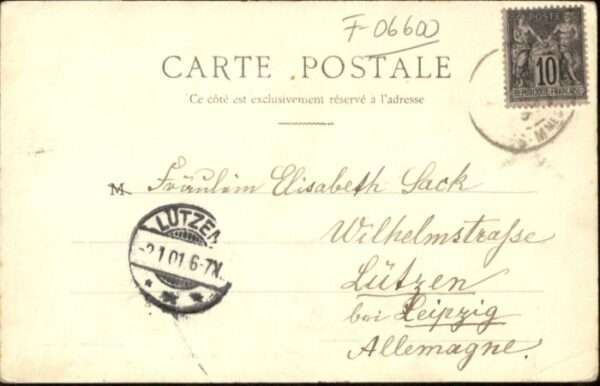 F-06600
CARTE POSTALE
Ce côté est exclusivement réservé à l'adresse
POSTE
10
REPUBLIQUE FRANÇAISE
M Fräulein Elisabeth Sack
Wilhelmstraße
Lützen
bei Leipzig
Allemagne.
LÜTZEN
-2 1 01 6-7N.